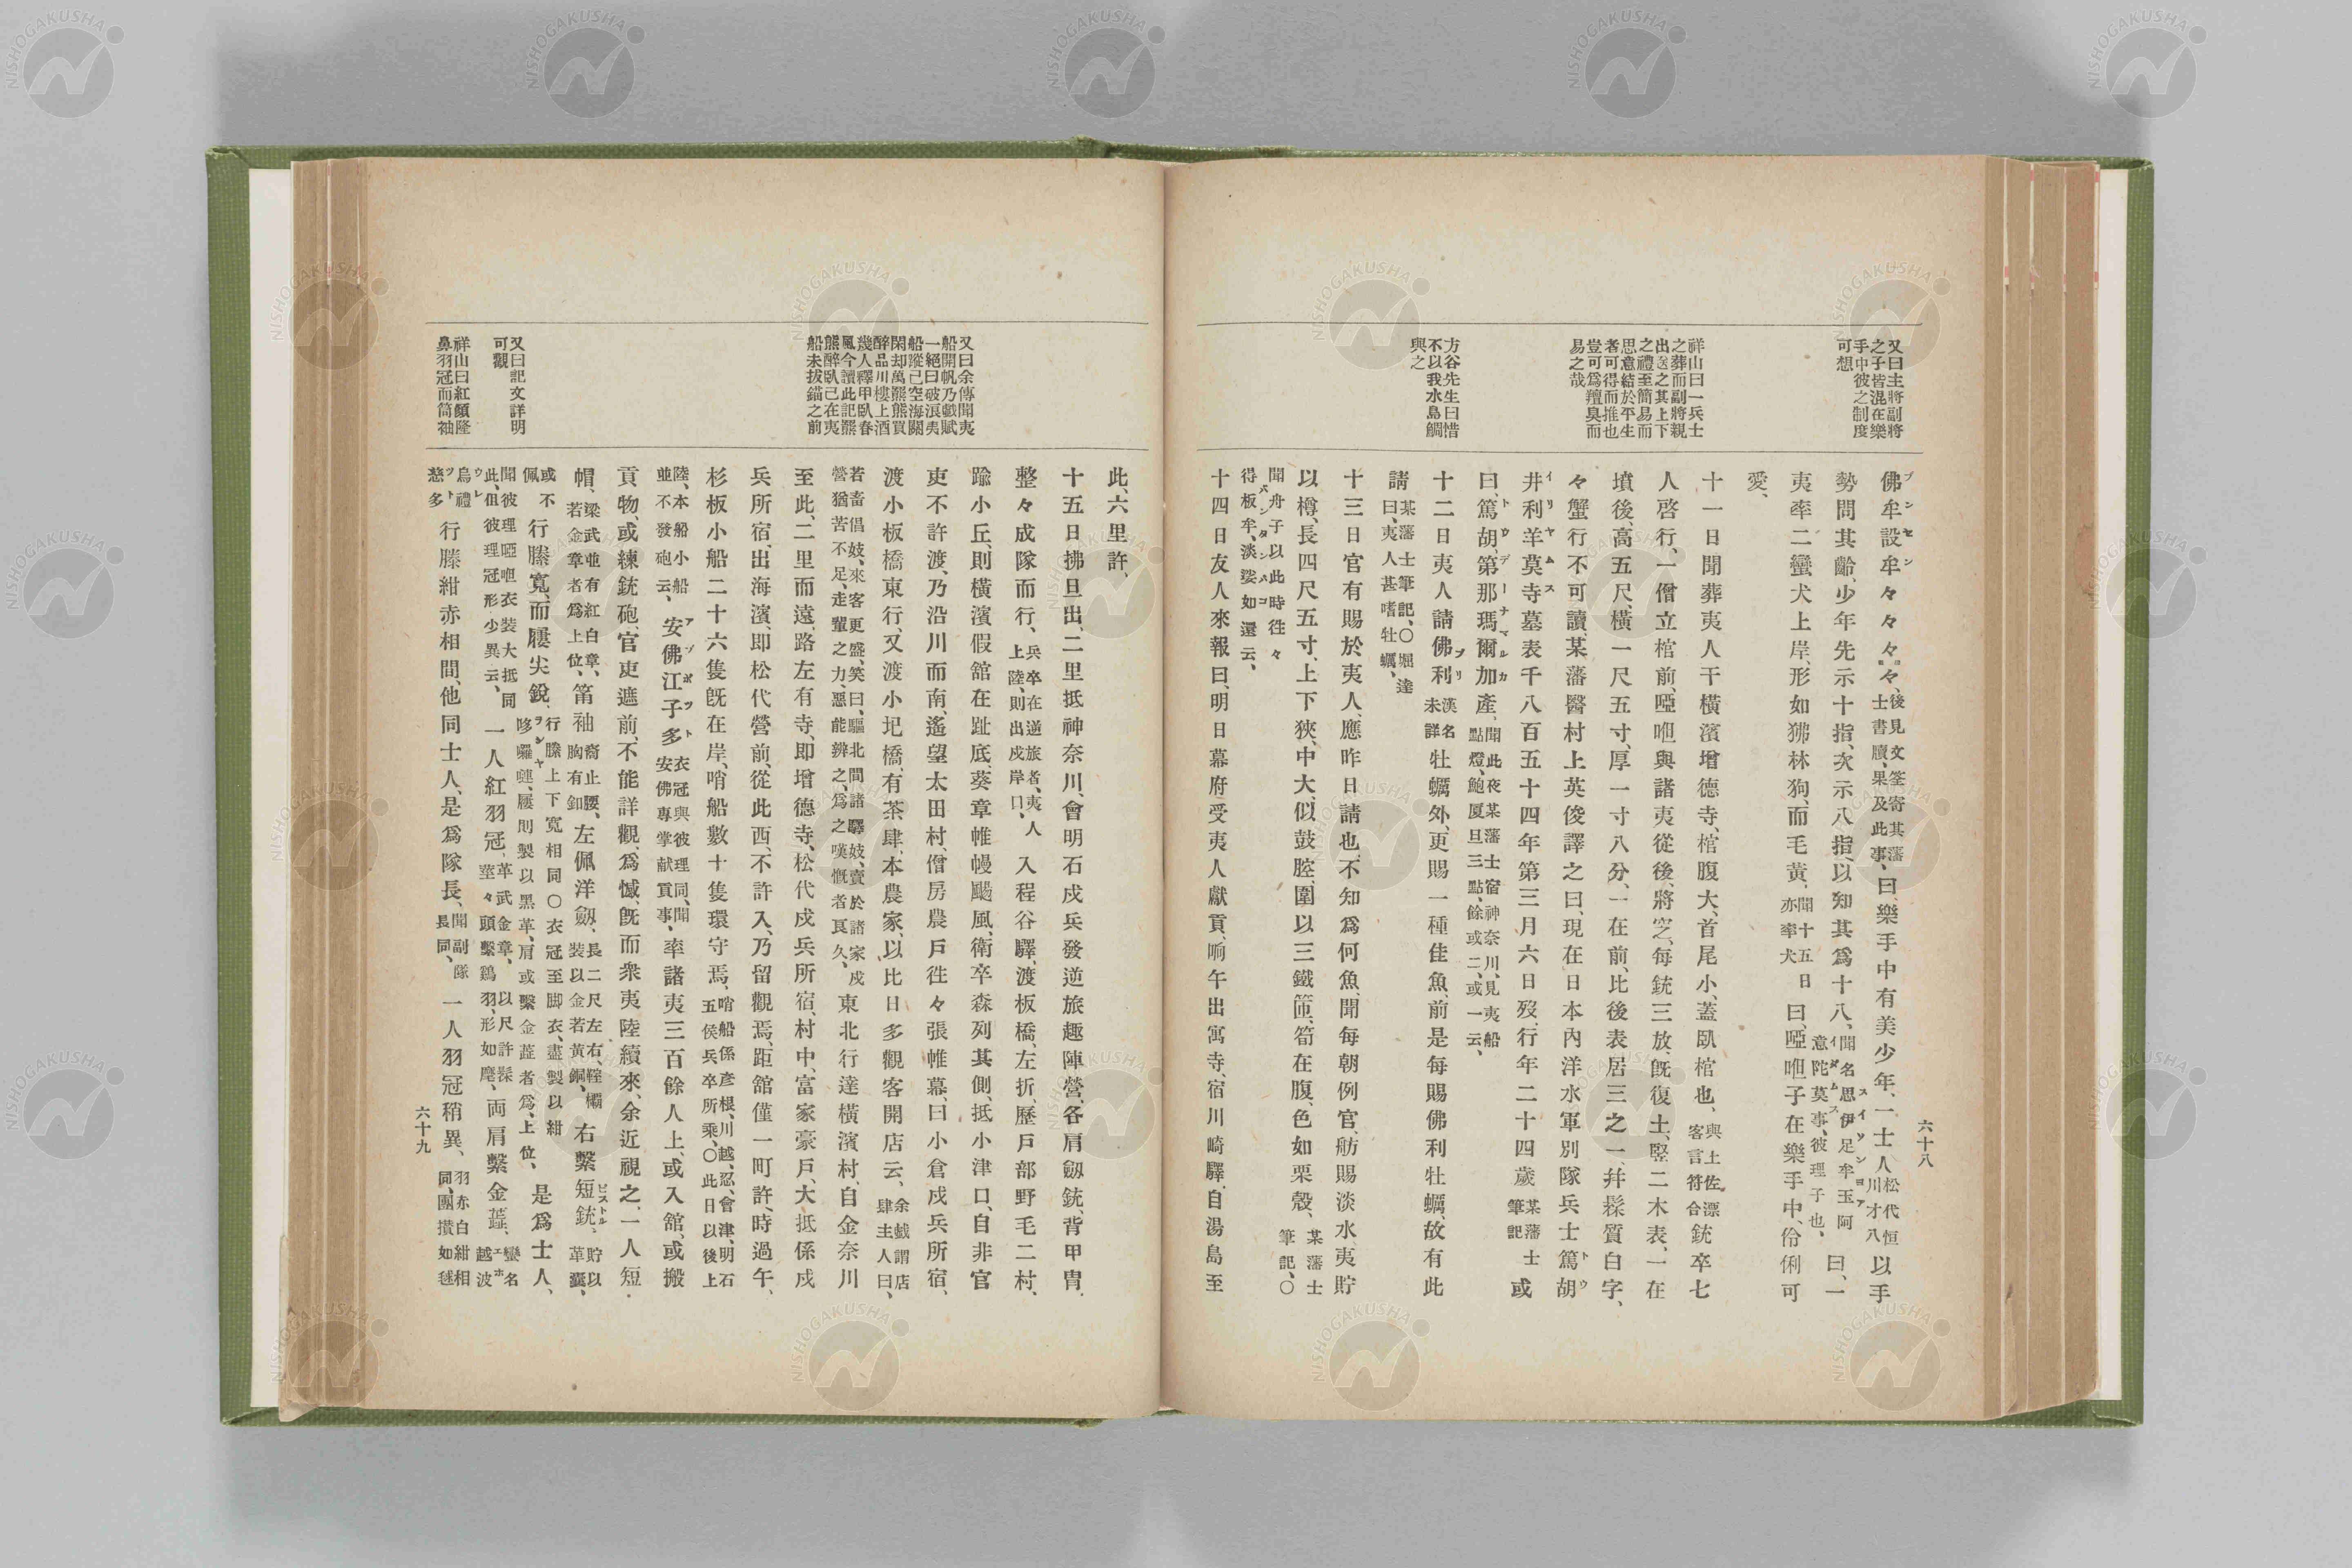 六十八
又曰主將副將
之子皆混在樂
手中彼之制度
可想
祥山曰一兵士
之葬而副將親
出送之其上下
之禮至簡易而
思意結於平生
者可得而推也
豈可爲羶臭而
易之哉
方谷先生曰惜
不以我水島鯛
與之
佛牟設牟々々々、後見文筌寄其藩士書牘、果及此事、曰、樂手中有美少年、一士人松代恒川才八以手
勢問其齡、少年先示十指、次示八指、以知其爲十八、聞名思伊足牟玉阿意陀莫事、彼理子也、曰、一
夷牽二蠻犬上岸、形如獅林狗、而毛黃、聞十五日亦牽犬曰、啞咃子在樂手中、伶俐可
愛、
十一日聞葬夷人干橫濱增德寺、棺腹大、首尾小、蓋臥棺也、與土佐漂客言符合銃卒七
人啓行、一僧立棺前、啞咃與諸夷從後、將窆、每銃三放、旣復土、竪二木表、一在
墳後、高五尺、橫一尺五寸、厚一寸八分、一在前、比後表居三之一、幷髹質白字、
々蟹行不可讀、某藩醫村上英俊譯之曰、現在日本內洋水軍別隊兵士篤胡
井利羊莫寺墓表千八百五十四年第三月六日歿、行年二十四歲某藩士筆記或
曰、篤胡、第那瑪爾加產、聞此夜某藩士宿神奈川、見夷船點燈、鮑厦旦三點、餘或二、或一云、
十二日夷人請佛利漢名未詳牡蠣外、更賜一種佳魚、前是每賜佛利牡蠣、故有此
請某藩士筆記、〇堀達曰、夷人甚嗜牡蠣、
十三日官有賜於夷人、應昨日請也、不知爲何魚、聞每朝例官舫賜淡水夷貯
以樽、長四尺五寸、上下狹、中大、似鼓腔、圍以三鐵箍、筍在腹、色如栗殼、某藩士筆記、〇
聞舟子以此時徃々得板牟、淡娑如還云、
十四日友人來報曰、明日幕府受夷人獻貢、晌午出寓寺、宿川崎驛、自湯島至
又曰余傳聞夷
船開帆乃戲賦
一絕曰破浪夷
船蹤已空海關
閑却萬羆熊質
醉品川樓上酒
幾人釋甲臥春
風今讀此記羆
熊醉臥已在夷
船未拔錨之前
又曰記文詳明
可觀
祥山曰紅顏隆
鼻羽冠而筒袖
此、六里許、
十五日拂旦出、二里抵神奈川、會明石戍兵發逆旅趣陣營、各肩劔銃、背甲冑、
整々成隊而行、兵卒在逆旅者、夷人上陸、則出戍岸口、入程谷驛、渡板橋、左折、歷戸部野毛二村、
踰小丘、則橫濱假舘在趾底、葵章帷幔颺風、衛卒森列其側、抵小津口、自非官
吏不許渡、乃沿川而南、遙望太田村、僧房農戶徃々張帷幕、曰小倉戍兵所宿、
渡小板橋東行、又渡小圯橋、有茶肆、本農家、以比日多觀客開店云、余戲謂店肆主人曰、
若畜倡妓、來客更盛、笑曰、驅北間諸驛妓、賣於諸家戍營猶苦不足、走輩之力、惡能辨之、爲之嘆慨者良久、東北行達橫濱村、自金奈川
至此、二里而遠、路左有寺、即增德寺、松代戍兵所宿、村中、富家豪戶、大抵係戍
兵所宿、出海濱、即松代營前、從此西、不許入、乃留觀焉、距舘僅一町許、時過午、
杉板小船二十六隻旣在岸、哨船數十隻環守焉、哨船係彥根、川越、忍、會津、明石五侯兵卒所乘、〇此日以後上
陸、本船小船並不發砲云、安佛江子多衣冠與彼理同、聞安佛專掌献貢事、率諸夷三百餘人上、或入舘、或搬
貢物、或練銃砲、官吏遮前、不能詳觀、爲憾、旣而衆夷陸續來、余近視之、一人短
帽、梁武並有紅白章、若金章者爲上位、筩袖裔止腰、胸有釦、左佩洋劔、長二尺左右、鞓欛裝以金若黃銅、右繫短銃、貯以革囊、
或不佩行縢寬、而屨尖銳、行縢上下寬相同〇衣冠至脚衣、盡製以紺哆囉嗹、屨則製以黑革、肩或繫金蘁者爲上位、是爲士人、
聞彼理啞咃衣裝大抵同此、但彼理冠形少異云、一人紅羽冠、革武金章、以尺許髹莖々頭繫鷄羽、形如麾、両肩繫金蘁、蠻名越波
烏禮慈多行縢紺赤相間、他同士人、是爲隊長、聞副隊長同、一人羽冠稍異、羽赤白紺相同、團攢如毬
六十九